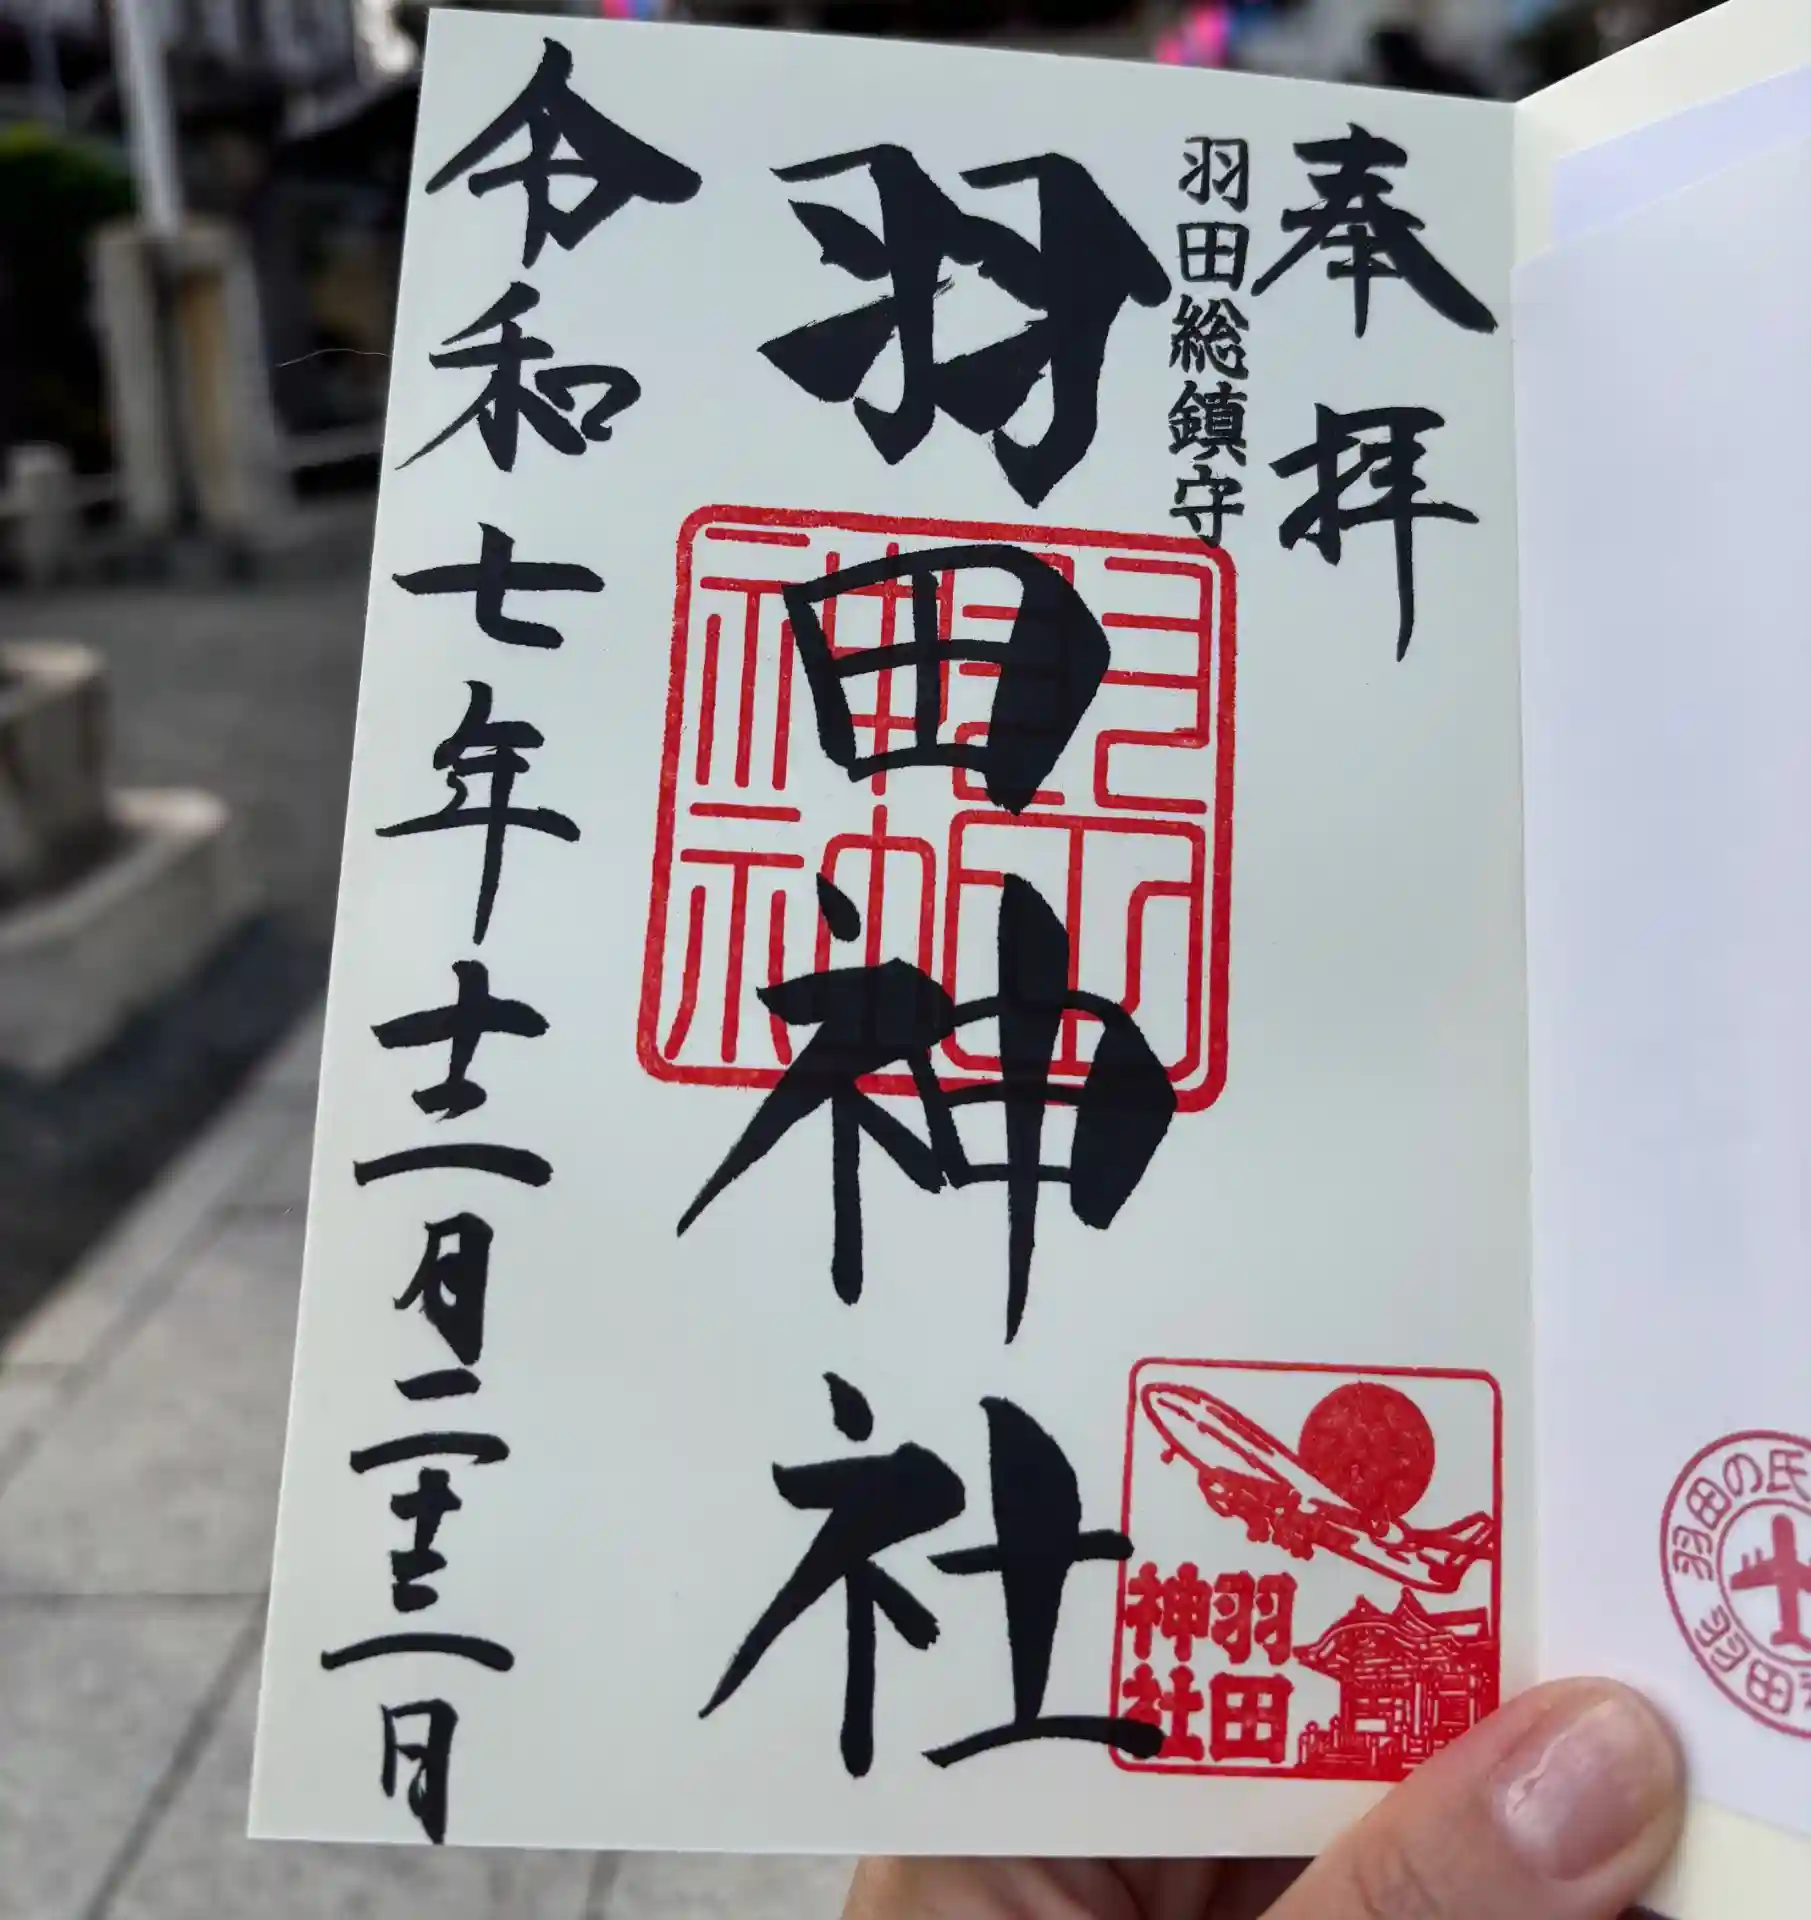 奉拝
羽田総鎮守
羽田神社
令和七年十二月二十三日
羽田
神社
羽田の氏
羽田